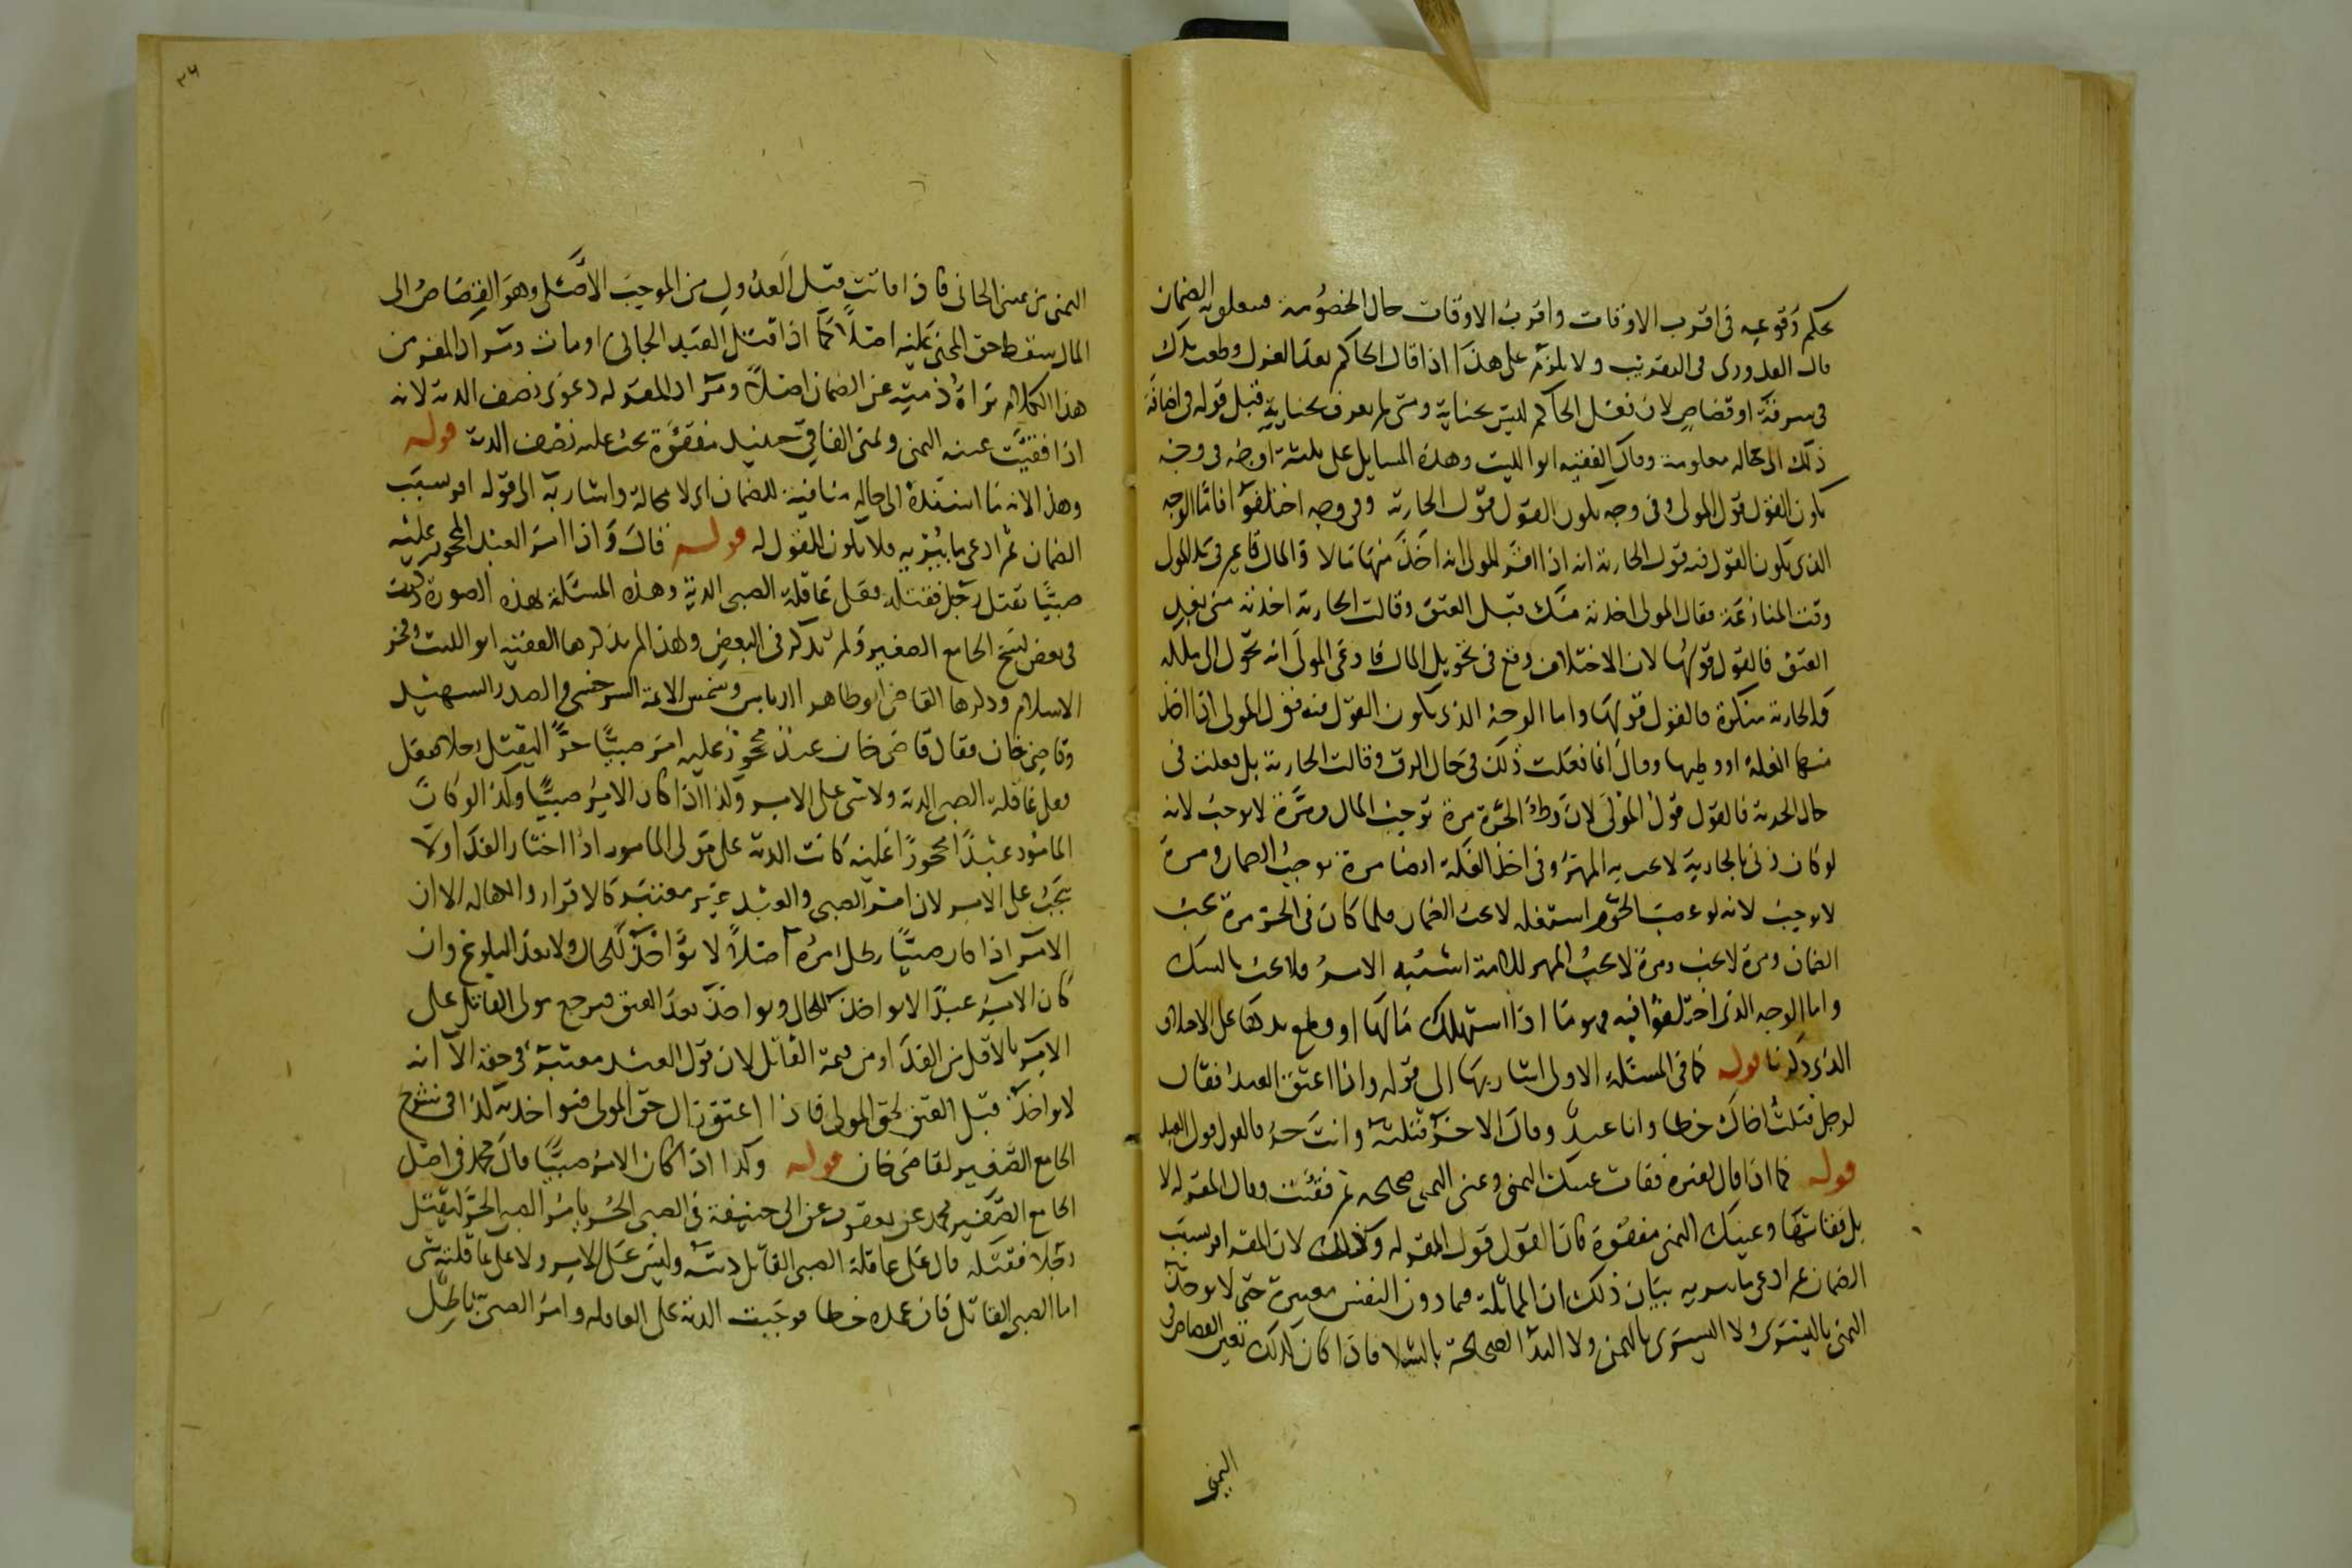 بحكم وقوعه فى اقرب الاوقات واقرب الاوقات حال الخصومة فيتعلق به الضمان
قال القدورى فى التقريب ولا يلزم على هذا اذا قال الحاكم بعد العزل قطعت يدك
فى سرقة او قصاص لان فعل الحاكم ليس بجناية ومتى لم يعرف بجناية قبل قوله فى اضافة
ذلك الى حالة معلومة وقال الفقيه ابو الليث وهذه المسايل على ثلثة اوجه فى وجه
يكون القول قول المولى وفى وجه يكون القول قول الجارية وفى وجه اختلفوا فاما الوجه
الذى يكون القول فيه قول الجارية انه اذا اقر المولى انه اخذ منها مالا والمال قايم فى يد المولى
وقت المنازعة فقال المولى اخذته منك قبل العتق وقالت الجارية اخذته منى بعد
العتق فالقول قولها لان الاختلاف وقع فى تحويل المال فادعى المولى انه تحول الى ملكه
والجارية منكرة فالقول قولها واما الوجه الذى يكون القول فيه قول المولى اذا اخذ
منها الغلة او وطيها وقال انما فعلت ذلك فى حال الرق وقالت الجارية بل فعلت فى
حال الحرية فالقول قول المولى لان وطء الحرة مرة توجب المال ومرة لا يوجب لانه
لو كان زنى بالجارية لا يجب به المهر وفى اخذ الغلة ايضا مرة يوجب الضمان ومرة
لا يوجب لانه لو غصب الحر واستغله لا يجب الضمان فلما كان فى الحر مرة يجب
الضمان ومرة لا يجب ومرة لا يجب المهر للامة اشتبه الامر فلا يجب بالشك
واما الوجه الذى اختلفوا فيه فهو ما اذا استهلك مالها او قطع يدها على الاختلاف
الذى ذكرنا قوله كما فى المسئلة الاولى اشار بها الى قوله واذا اعتق العبد فقال
لرجل قتلت اخاك خطا وانا عبد وقال الاخر قتلته وانت حر فالقول قول العبد
قوله كما اذا قال لغيره فقات عينك اليمنى وعينى اليمنى صحيحة ثم فقئت وقال المقر له لا
بل فقاتها وعينك اليمنى مفقؤة كان القول قول المقر له وذلك لان المقر اقر بسبب
الضمان ثم ادعى ما يبريه بيان ذلك ان المماثلة فيما دون النفس معتبرة حتى لا يوخذ
اليمنى باليسرى ولا اليسرى باليمنى ولا اليد الصحيحة بالشلا فاذا كان كذلك تعين القصاص فى
اليمنى
٣٦
اليمنى من عينى الجانى فاذا فاتت قبل العدول من الموجب الاصلى وهو القصاص الى
المال سقط حق المجنى عليه اصلا كما اذا قتل العبد الجانى او مات ومراد المقر من
هذا الكلام براة ذمته عن الضمان اصلا ومراد المقر له دعوى نصف الدية لانه
اذا فقيت عينه اليمنى ويمنى الفاقى حينيذ مفقؤة يجب عليه نصف الدية قوله
وهذا لانه ما اسنده الى حالة منافية للضمان اى لا محالة واشار به الى قوله اقر بسبب
الضمان ثم ادعى ما يبريه فلا يكون القول له قوله قال واذا امر العبد المحجور عليه
صبيا بقتل رجل فقتله فعلى عاقلة الصبى الدية وهذه المسئلة بهذه الصورة ذكرت
فى بعض نسخ الجامع الصغير ولم تذكر فى البعض ولهذا لم يذكرها الفقيه ابو الليث وفخر
الاسلام وذكرها القاضى ابو طاهر الدباس وشمس الائمة السرخسى والصدر الشهيد
وقاضى خان فقال قاضى خان عبد محجور عليه امر صبيا حرا ليقتل رجلا فقتل
فعلى عاقلة الصبى الدية ولا شى على الامر وكذا اذا كان الامر صبيا وكذا لو كان
المامور عبدا محجورا عليه كانت الدية على مولى المامور اذا اختار الفدا ولا
يجب على الامر لان امر الصبى والعبد غير معتبر كالاقرار والكفالة الا ان
الامر اذا كان صبيا بطل امره اصلا لا يواخذ للحال ولا بعد البلوغ وان
كان الامر عبدا لا يواخذ للحال ويواخذ بعد العتق فيرجع مولى القاتل على
الامر بالاقل من الفدا ومن قيمة القاتل لان قول العبد معتبر فى حقه الا انه
لا يواخذ قبل العتق لحق المولى فاذا اعتق زال حق المولى فيواخذ به كذا فى شرح
الجامع الصغير لقاضى خان قوله وكذا اذا كان الامر صبيا قال محمد فى اصل
الجامع الصغير محمد عن يعقوب عن ابى حنيفة فى الصبى الحر يامر الصبى الحر ليقتل
رجلا فقتله قال على عاقلة الصبى القاتل ديته وليس على الامر ولا على عاقلته شى
اما الصبى القاتل فان عمده خطا فوجبت الدية على العاقلة وامر الصبى باطل